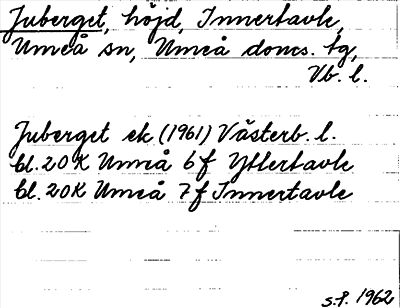 Juberget, höjd, Innertavle,
Umeå sn, Umeå doms. tg,
Vb. l.
Juberget ek (1961) Västerb. l.
bl. 20K Umeå 6f Yttertavle
bl. 20K Umeå 7f Innertavle
S.P. 1962